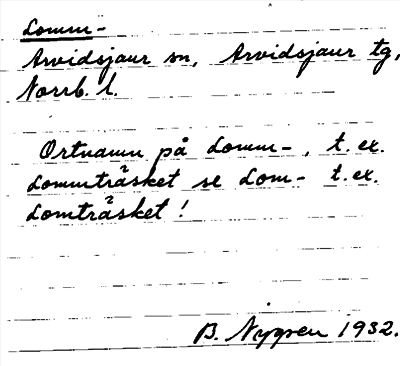 Lomm-
Arvidsjaur sn, Arvidsjaur tg,
Norrb. l.
Ortnamn på Lomm-, t. ex.
Lommträsket se Lom- t. ex.
Lomträsket!
B. Nygren 1932.